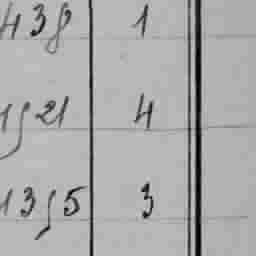 438 1
1821 4
1385 3